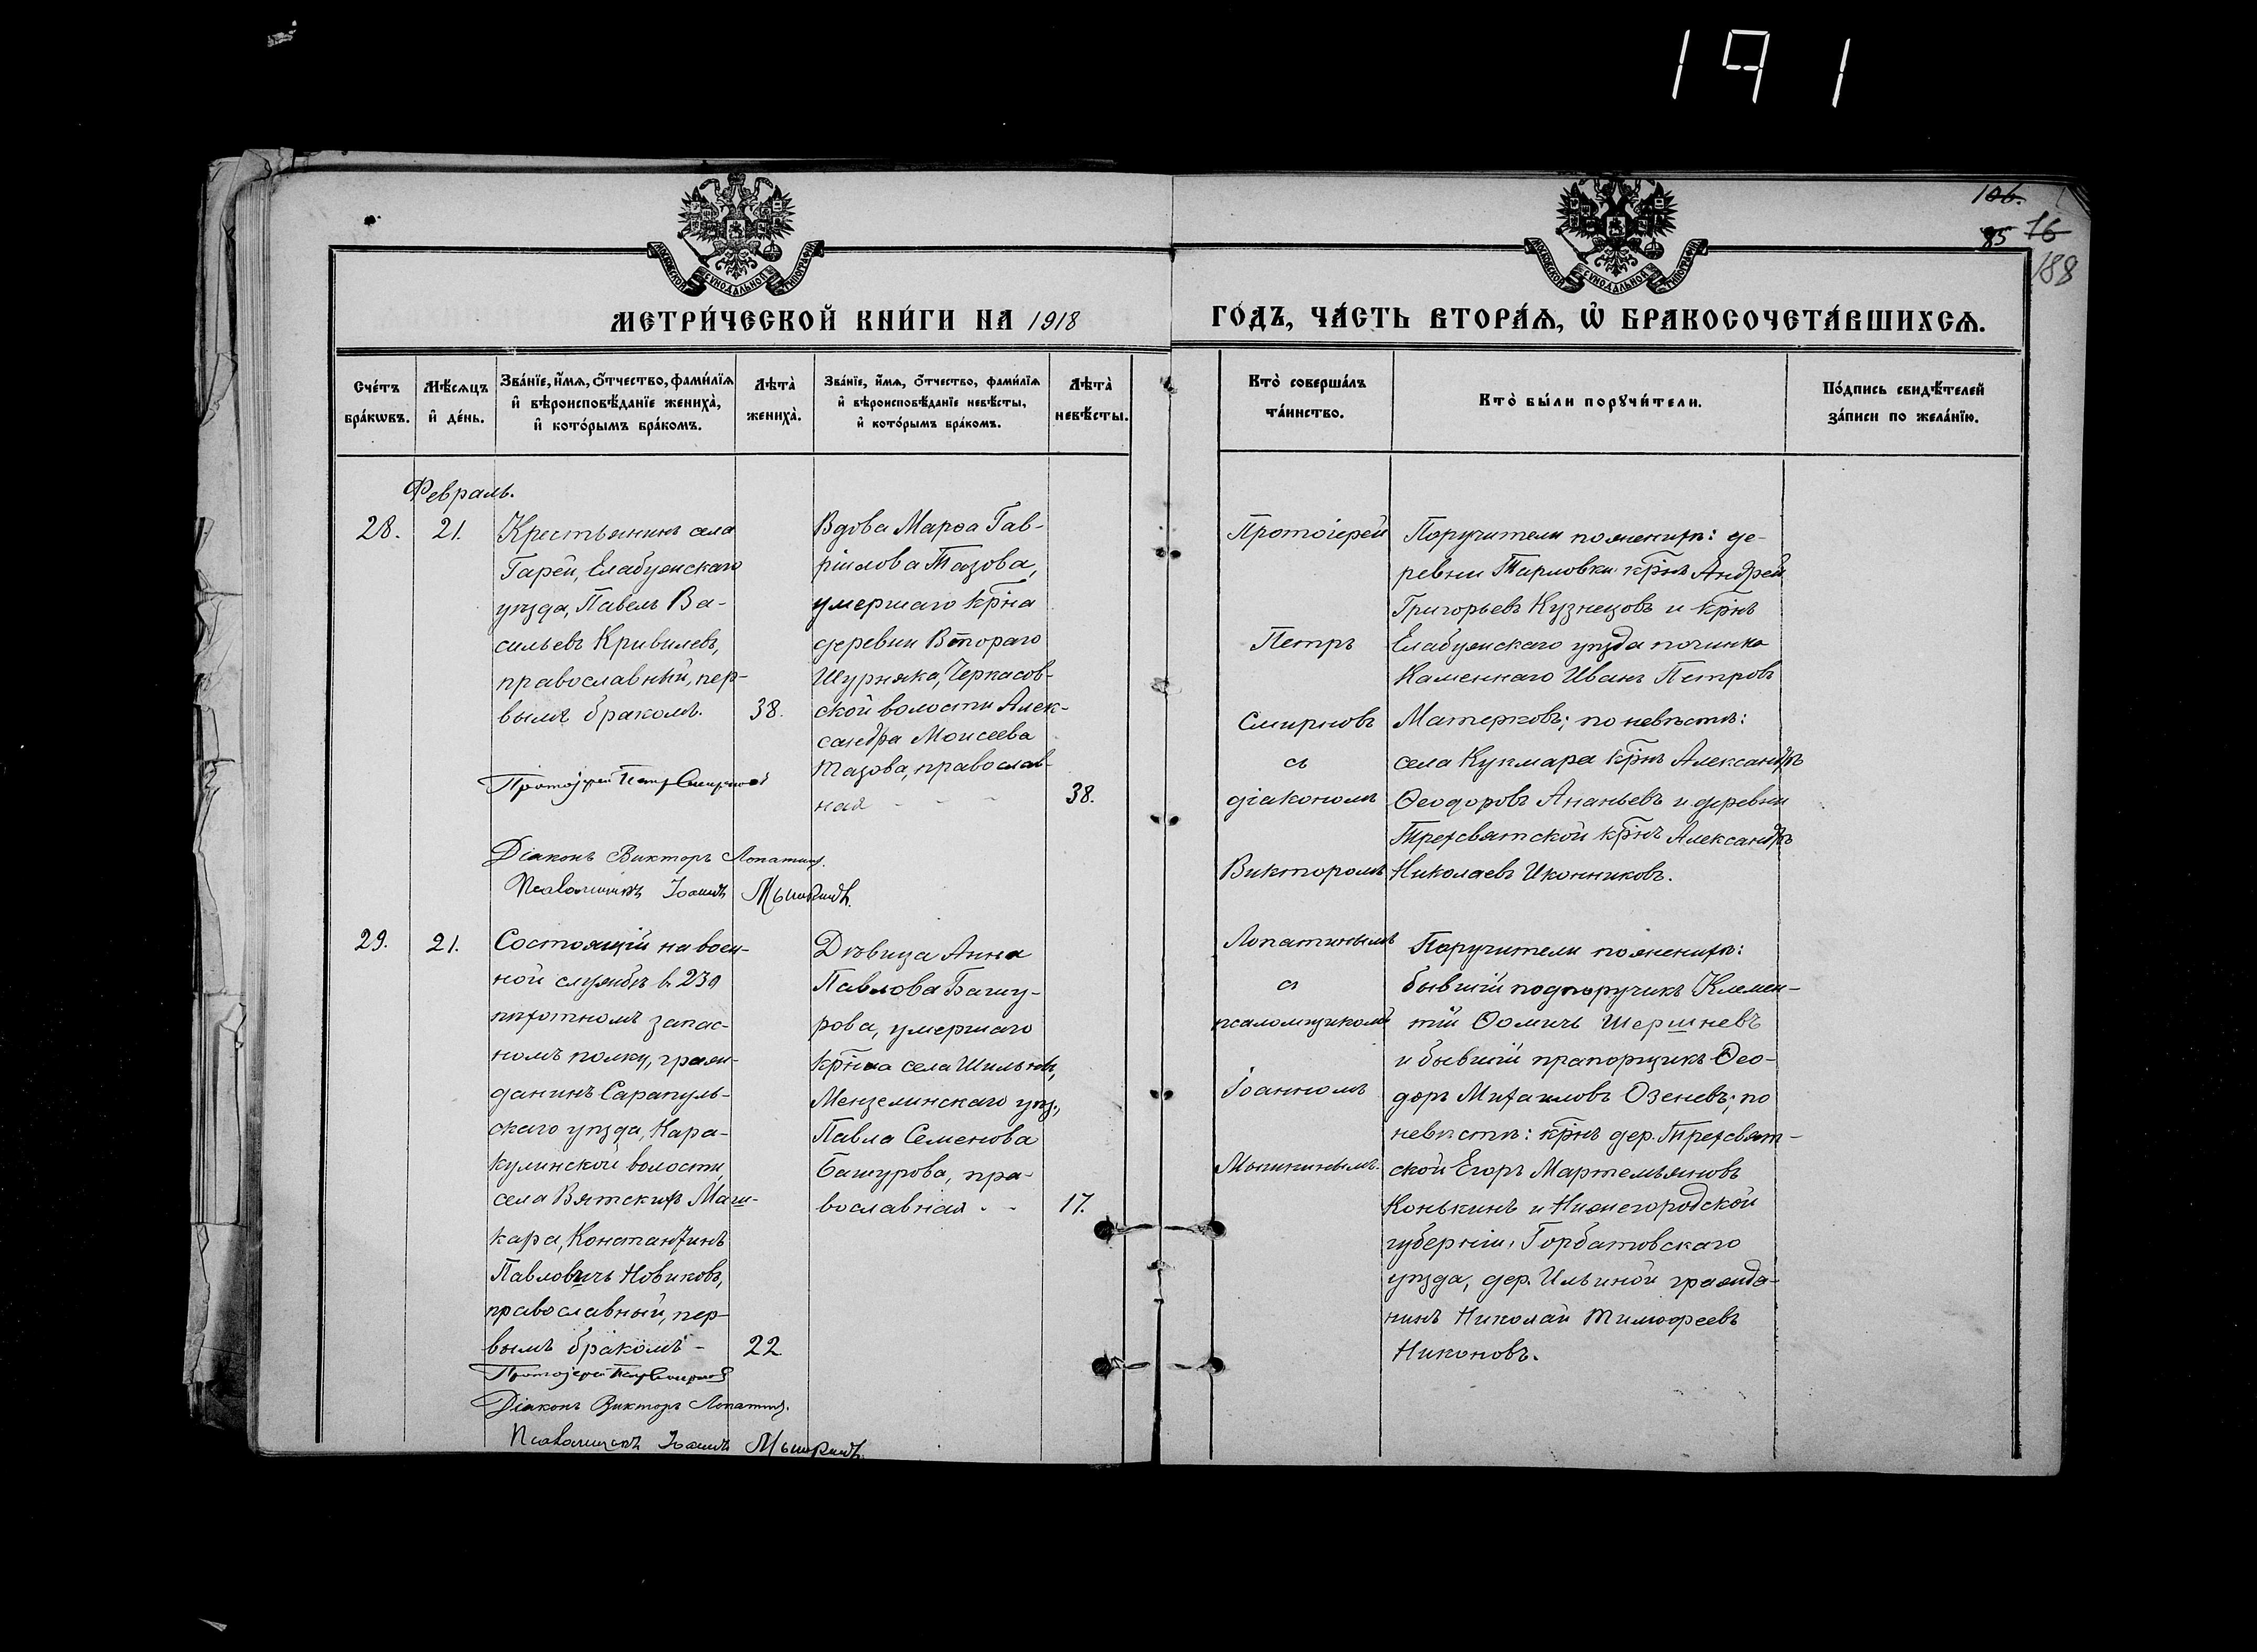 191
106.
85 16
188
МОСКОВСКОЙ СѴНОДАЛЬНОЙ ТИПОГРАФІИ
МОСКОВСКОЙ СѴНОДАЛЬНОЙ ТИПОГРАФІИ
МЕТРИ́ЧЕСКОЙ КНИ́ГИ НА 1918
ГО́ДЪ, ЧА́СТЬ ВТОРА́Ѧ, Ѡ҆ БРАКОСОЧЕТА́ВШИХСѦ.
Сче́тъ
бра́кѡвъ.
Мѣ́сѧцъ
и҆ де́нь.
Зва́нїе, и҆́мѧ, ѻ҆́тчество, фами́лїѧ
и҆ вѣроисповѣ́данїе жениха̀,
и҆ кото́рымъ бра́комъ.
Лѣта̀
жениха̀.
Зва́нїе, и҆́мѧ, ѻ҆́тчество, фами́лїѧ
и҆ вѣроисповѣ́данїе невѣ́сты,
и҆ кото́рымъ бра́комъ.
Лѣта̀
невѣ́сты.
Кто̀ соверша́лъ
та́инство.
Кто̀ бы́ли порꙋчи́тели.
По́дпись свидѣ́телей
за́писи по жела́нїю.
Февраль.
28.
21.
Крестьянинъ села
Гарей, Елабужскаго
уѣзда, Павелъ Ва-
сильевъ Кривилевъ,
православный, пер-
вымъ бракомъ.
38.
Протоjерей Петръ Смирновъ
Діаконъ Викторъ Лопатинъ.
Псаломщикъ Іоаннъ Мышкинъ.
Вдова Марѳа Гав-
ріилова Тазова,
умершаго кр̅на
деревни Второго
Шурняка, Черкасов-
ской волости Алек-
сандра Моисеева
Тазова, православ-
ная - - -
38.
Протоіерей
Петръ
Смирновъ
съ
діакономъ
Викторомъ
Лопатинымъ
съ
псаломщикомъ
Іоанномъ
Мышкинымъ.
Поручители по женихѣ: де-
ревни Тарловки кр̅нъ Андрей
Григорьевъ Кузнецовъ и кр̅нъ
Елабужскаго уѣзда починка
Каменнаго Иванъ Петровъ
Матерковъ; по невѣстѣ:
села Кукмара кр̅нъ Александръ
Ѳеодоровъ Ананьевъ и деревни
Трехсвятской кр̅нъ Александръ
Николаевъ Иконниковъ.
29.
21.
Состоящій на воен-
ной службѣ въ 239
пѣхотномъ запас-
номъ полку, граж-
данинъ Сарапуль-
скаго уѣзда, Кара-
кулинской волости,
села Вятскихъ Маш-
кара, Константинъ
Павловичъ Новиковъ,
православный, пер-
вымъ бракомъ -
22
Протоjерей Петръ Смирновъ
Діаконъ Викторъ Лопатинъ.
Псаломщикъ Іоаннъ Мышкинъ.
Дѣвица Анна
Павлова Башу-
рова, умершаго
кр̅на села Шильны,
Мензелинскаго уѣз.,
Павла Семенова
Башурова, пра-
вославная - -
17.
Поручители по женихѣ:
бывшій подпоручикъ Клемен-
тій Ѳомичъ Шершневъ
и бывшій прапорщикъ Ѳео-
доръ Михаиловъ Озеневъ; по
невѣстѣ: кр̅нъ дер. Трехсвят-
ской Егоръ Мартемьяновъ
Конькинъ и Нижегородской
губерніи, Горбатовскаго
уѣзда, дер. Ильиной гражда-
нинъ Николай Тимофеевъ
Никоновъ.